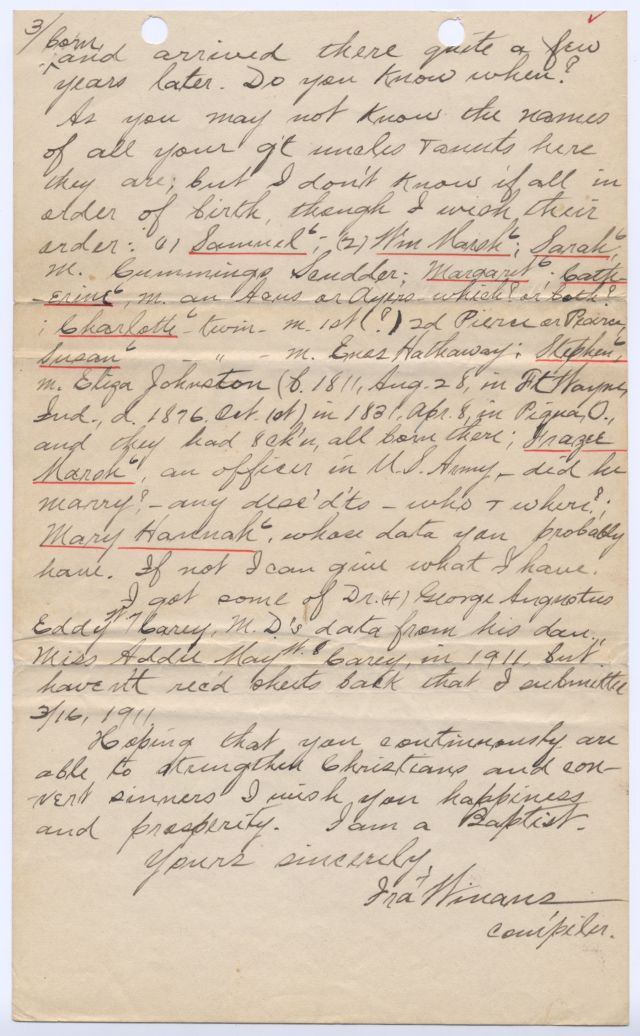 3/
born
and arrived there quite a few
years later. Do you know when?
As you may not know the names
of all your g't uncles & aunts here
they are; but I don't know if all in
order of birth, though I wish their
order: (1) Samuel⁶; (2) Wm Marsh⁶; Sarah⁶,
m. Cummings Scudder; Margaret⁶; Cath-
erine⁶, m. an Acus or Ayers - which? or both?
; Charlotte⁶ - twin - m. 1st (?) 2d Pierce or Pearce,
Susan⁶ - " - m. Enos Hathaway; Stephen⁶,
m. Eliza Johnston (b. 1811, Aug. 28, in Ft Wayne,
Ind., d. 1876, Oct. (st) in 1831, Apr. 8, in Piqua, O.,
and they had 8 ch'n, all born there; Frazee
Marsh⁶, an officer in U.S. Army, - did he
marry? - any desc'd'ts - who & where?;
Mary Hannah⁶, whose data you probably
have. If not I can give what I have.
I got some of Dr. (4) George Augustus
Eddy Carey, M.D's data from his dau.,
Miss Addie May Carey, in 1911, but
haven't rec'd sheets back that I submitted
3/16, 1911
Hoping that you continuously are
able to strengthen Christians and con-
vert sinners I wish you happiness
and prosperity. I am a Baptist.
Yours sincerely,
Ira⁷ Winans
compiler.